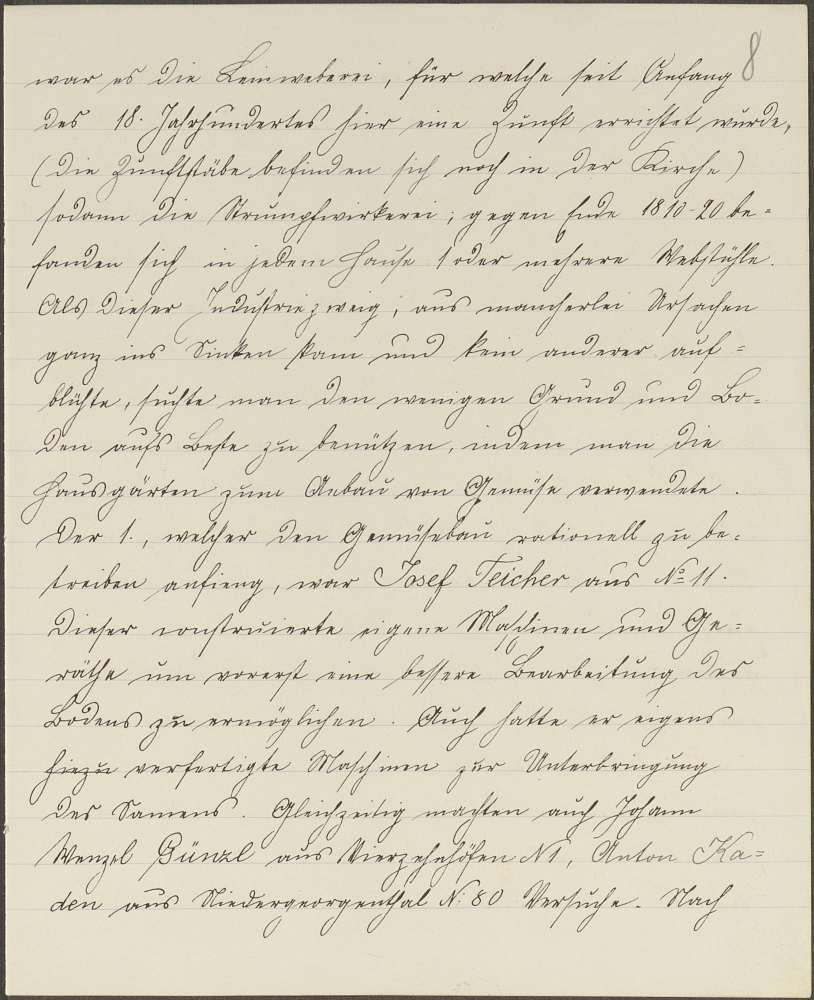 8
war es die Leinweberei, für welche seit Anfang
des 18. Jahrhundertes hier eine Zunft errichtet wurde,
(die Zunftstäbe befinden sich noch in der Kirche)
sodann die Strumpfwirkerei; gegen Ende 1810-20 be=
fanden sich in jedem Hause 1 oder mehrere Webstühle.
Als dieser Industriezweig, aus mancherlei Ursachen
ganz ins Sinken kam und kein anderer auf=
blühte, suchte man den wenigen Grund und Bo=
den aufs Beste zu benützen, indem man die
Hausgärten zum Anbau von Gemüse verwendete.
Der 1., welcher den Gemüsebau rationell zu be=
treiben anfieng, war Josef Teicher aus No 11.
Dieser construierte eigene Maschinen und Ge=
räthe um vorerst eine bessere Bearbeitung des
Bodens zu ermöglichen. Auch hatte er eigens
hiezu verfertigte Maschinen zur Unterbringung
des Samens. Gleichzeitig machten auch Johann
Wenzel Günzl aus Vierzehnhöfen N 1, Anton Ka=
den aus Niedergeorgenthal N: 80 Versuche. Nach